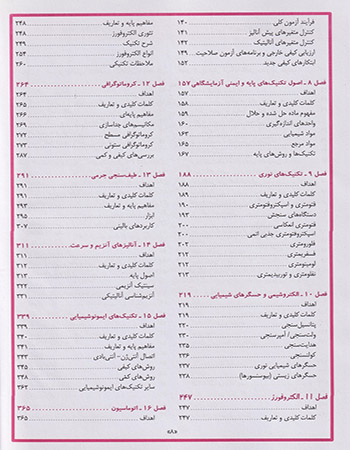 فرآیند آزمون کلی ۱۴۰
کنترل متغیرهای پیش آنالیز ۱۴۱
کنترل متغیرهای آنالیتیک ۱۴۲
ارزیابی کیفی خارجی و برنامه‌های آزمون صلاحیت ۱۴۹
ابتکارهای کیفی جدید ۱۵۲
فصل ۸ ـ اصول تکنیک‌های پایه و ایمنی آزمایشگاهی ۱۵۷
اهداف ۱۵۷
کلمات کلیدی و تعاریف ۱۵۸
مفهوم ماده حل شده و حلال ۱۵۹
واحدهای اندازه‌گیری ۱۶۰
مواد شیمیایی ۱۶۳
مواد مرجع ۱۶۵
تکنیک‌ها و روش‌های پایه ۱۶۷
فصل ۹ ـ تکنیک‌های نوری ۱۸۸
اهداف ۱۸۸
کلمات کلیدی و تعاریف ۱۸۹
فتومتری و اسپکتروفتومتری ۱۹۰
دستگاه‌های سنجش ۱۹۳
فتومتری انعکاسی ۲۰۰
اسپکتروفتومتری جذب اتمی ۲۰۰
فلورومتری ۲۰۲
فسفریمتری ۲۱۲
لومینومتری ۲۱۲
نفلومتری و توربیدیمتری ۲۱۳
فصل ۱۰ ـ الکتروشیمی و حسگرهای شیمیایی ۲۱۹
اهداف ۲۱۹
کلمات کلیدی و تعاریف ۲۱۹
پتانسیل‌سنجی ۲۲۰
ولت‌سنجی/ آمپرسنجی ۲۳۰
هدایت‌سنجی ۲۳۵
کولنسجی ۲۳۶
حسگرهای شیمیایی نوری ۲۳۷
حسگرهای زیستی (بیوسنسورها) ۲۳۸
فصل ۱۱ ـ الکتروفورز ۲۴۷
اهداف ۲۴۷
کلمات کلیدی و تعاریف ۲۴۷
مفاهیم پایه و تعاریف ۲۴۸
تئوری الکتروفورز ۲۴۸
شرح تکنیک ۲۴۹
انواع الکتروفورز ۲۵۴
ملاحظات تکنیکی ۲۶۰
فصل ۱۲ ـ کروماتوگرافی ۲۶۴
اهداف ۲۶۴
کلمات کلیدی و تعاریف ۲۶۵
مفاهیم پایه‌ای ۲۶۶
مکانیسم‌های جداسازی ۲۶۹
کروماتوگرافی سطح ۲۷۲
کروماتوگرافی ستونی ۲۷۳
بررسی‌های کیفی و کمی ۲۸۷
فصل ۱۳ ـ طیف‌سنجی جرمی ۲۹۱
اهداف ۲۹۱
کلمات کلیدی و تعاریف ۲۹۱
مفاهیم پایه و تعاریف ۲۹۲
ابزار ۲۹۵
کاربردهای بالینی ۳۰۷
فصل ۱۴ ـ آنالیزهای آنزیم و سرعت ۳۱۱
اهداف ۳۱۱
کلمات کلیدی و تعاریف ۳۱۲
اصول پایه ۳۱۳
سینتیک آنزیمی ۳۲۲
آنزیم‌شناسی آنالیتیکی ۳۳۱
فصل ۱۵ ـ تکنیک‌های ایمونوشیمیایی ۳۳۹
اهداف ۳۳۹
کلمات کلیدی و تعاریف ۳۴۰
مفاهیم پایه و تعاریف ۳۴۰
اتصال آنتی‌ژن- آنتی‌بادی ۳۴۳
روش‌های کیفی ۳۴۵
روش‌های کمّی ۳۴۸
سایر تکنیک‌های ایمونوشیمیایی ۳۶۲
فصل ۱۶ ـ اتوماسیون ۳۶۵
اهداف ۳۶۵
«۸»